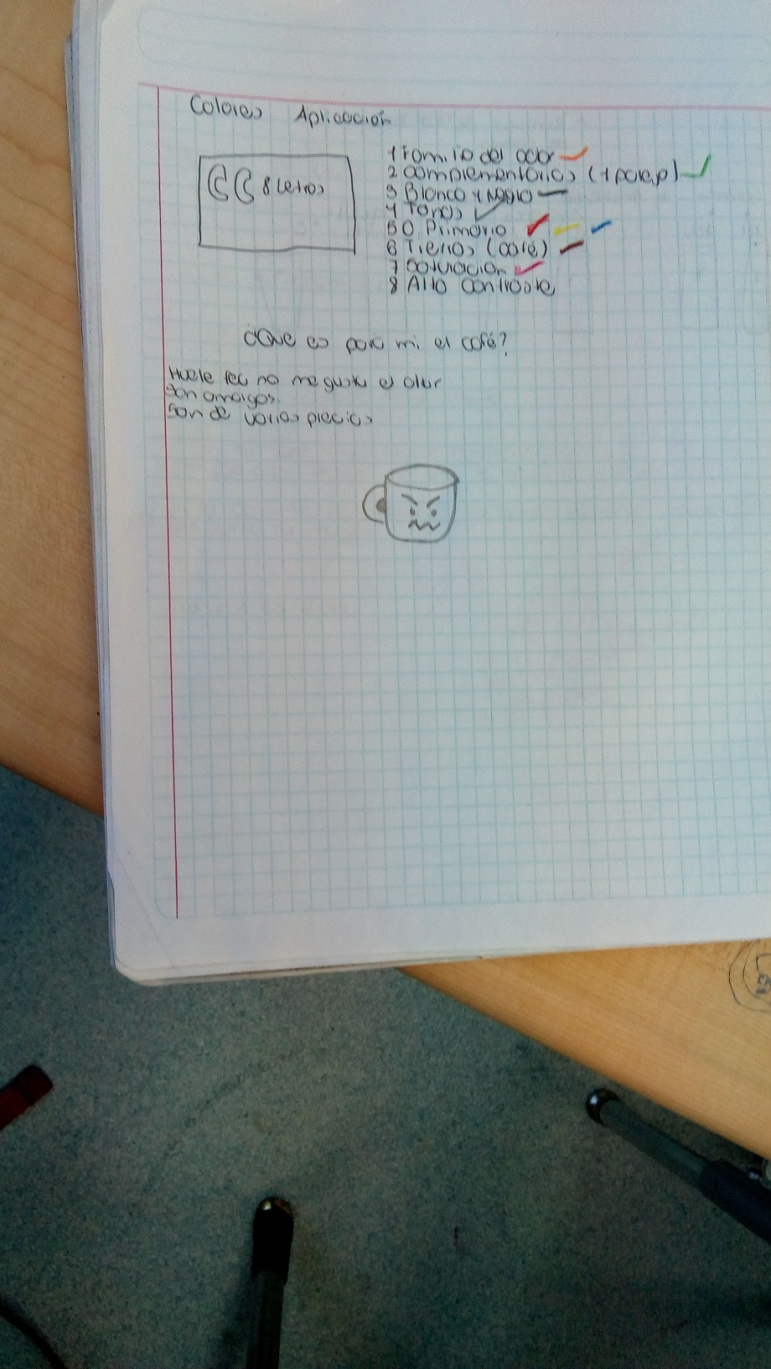 Colores Aplicación
CC 8 Letras
1 Familia del color
2 complementarios (1 parep)
3 Blanco y negro
4 Tonos
5 C. Primario
6 Tierras (café)
7 Saturación
8 Alto contraste
¿Que es para mi el café?
Huele feo no me gusta el olor
Son amargos.
Son de varios precios